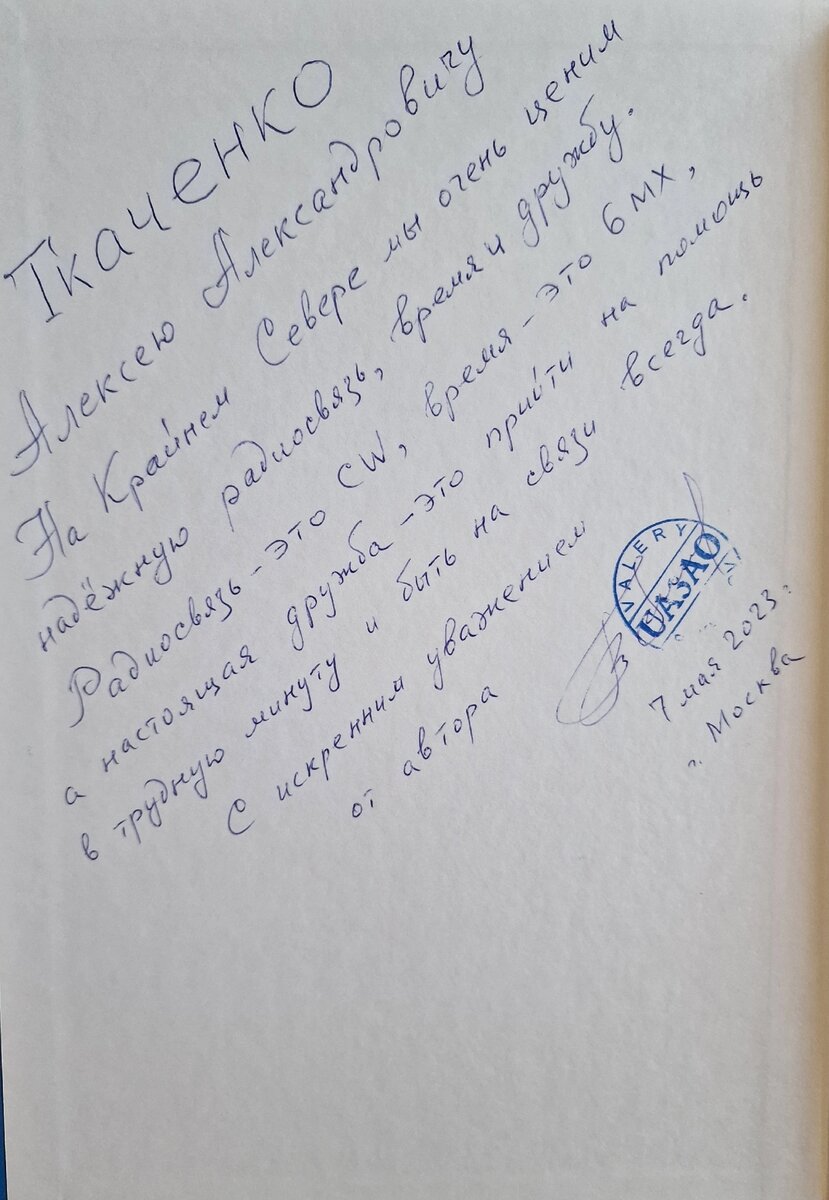 Ткаченко
Алексею Александровичу
На Крайнем Севере мы очень ценим
надёжную радиосвязь, время и дружбу.
Радиосвязь - это CW, время - это 6 МХ,
а настоящая дружба - это прийти на помощь
в трудную минуту и быть на связи всегда.
С искренним уважением
от автора
VALERY
UA3AO
7 мая 2023г.
г. Москва